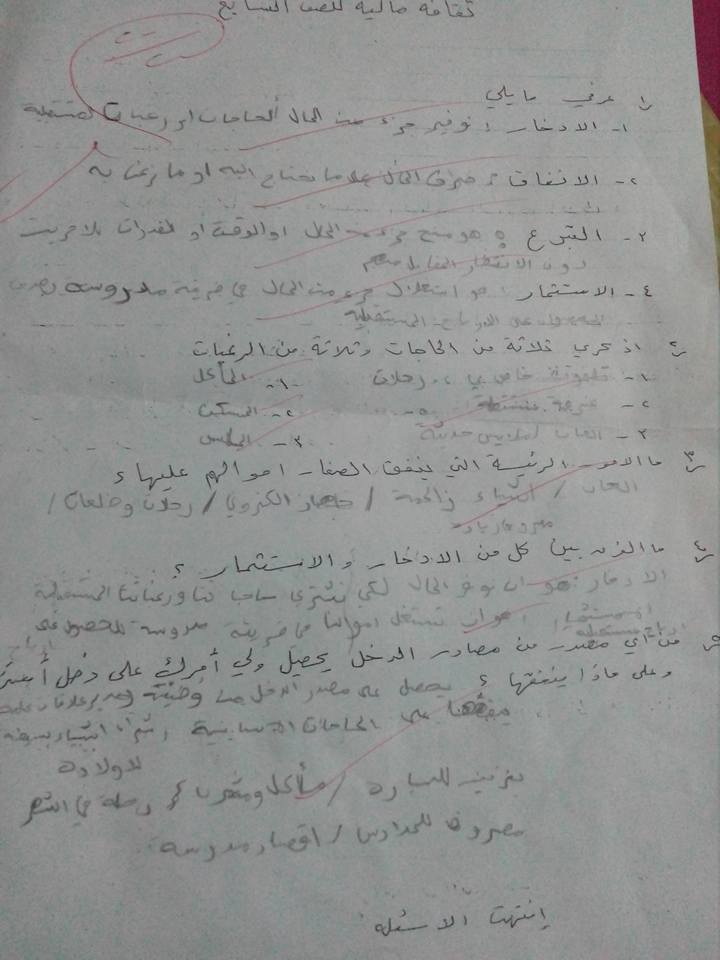 ثقافة مالية للصف السابع
١ عرفي ما يلي
١- الادخار : توفير جزء من المال لحاجات او رغبات مستقبلية
٢- الانفاق : صرف المال على ما نحتاج اليه او ما نرغب به
٣- التبرع : هو منح جزء من المال او الوقت او
دون الانتظار
٤- الاستثمار : هو استغلال جزء من المال في فرصة مدروسة
المستقبلية
٢ اذكري ثلاثة من الحاجات وثلاثة من الرغبات
١- تلفونة خاص بي ، رحلات ١- المأكل
٢- ٢- المسكن
٣- العاب / ملابس حديثة ٣- الملبس
٣ ما الامور الرئيسة التي ينفق الصغار اموالهم عليها ؟
العاب / أشياء / جهاز الكتروني / رحلات /
٤ ما الفرق بين كل من الادخار والاستثمار ؟
الادخار : هو ان نوفر المال لكي نشتري حاجاتنا ورغباتنا المستقبلية
الاستثمار : هو ان نستغل اموالنا في فرصة مدروسة للحصول على
ارباح مستقبلية
٥ من أي مصدر من مصادر الدخل يحصل ولي أمرك على دخل أسرتك
وعلى ماذا ينفقها ؟ يحصل على مصدر الدخل من وظيفة
ينفقها على الحاجات الاساسية
للاولاده
بنزين للسيارة / مأكل ومشرب / رحلة في الشهر
مصروف للمدارس / اقصاد مدرسة
إنتهت الاسئلة